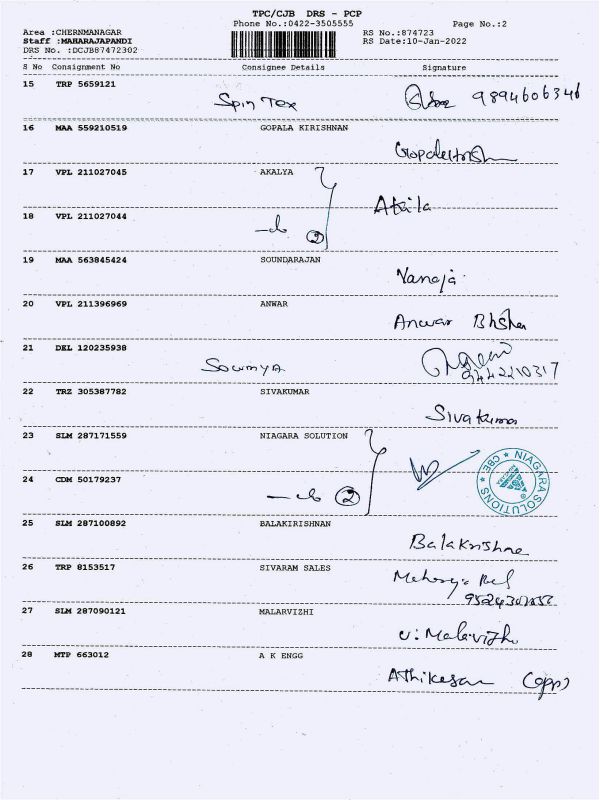 TPC/CJB DRS - PCP
Phone No.:0422-3505555 Page No.:2
Area :CHERNMANAGAR RS No.:874723
Staff :MAHARAJAPANDI RS Date:10-Jan-2022
DRS No. :DCJB87472302
S No Consignment No Consignee Details Signature
15 TRP 5659121
Spin Tex 9894606346
16 MAA 559210519 GOPALA KIRISHNAN
17 VPL 211027045 AKALYA
Akila
18 VPL 211027044
2
19 MAA 563845424 SOUNDARAJAN
Vanaja
20 VPL 211396969 ANWAR
Anwar Bhsha
21 DEL 120235938
Sowmya 9442210317
22 TRZ 305387782 SIVAKUMAR
Sivakumar
23 SLM 287171559 NIAGARA SOLUTION
NIAGARA SOLUTIONS * CBE *
24 CDM 50179237
2
25 SLM 287100892 BALAKIRISHNAN
Balakrishna
26 TRP 8153517 SIVARAM SALES
27 SLM 287090121 MALARVIZHI
V. Malarvizhi
28 MTP 663012 A K ENGG
Athikesan (opp)